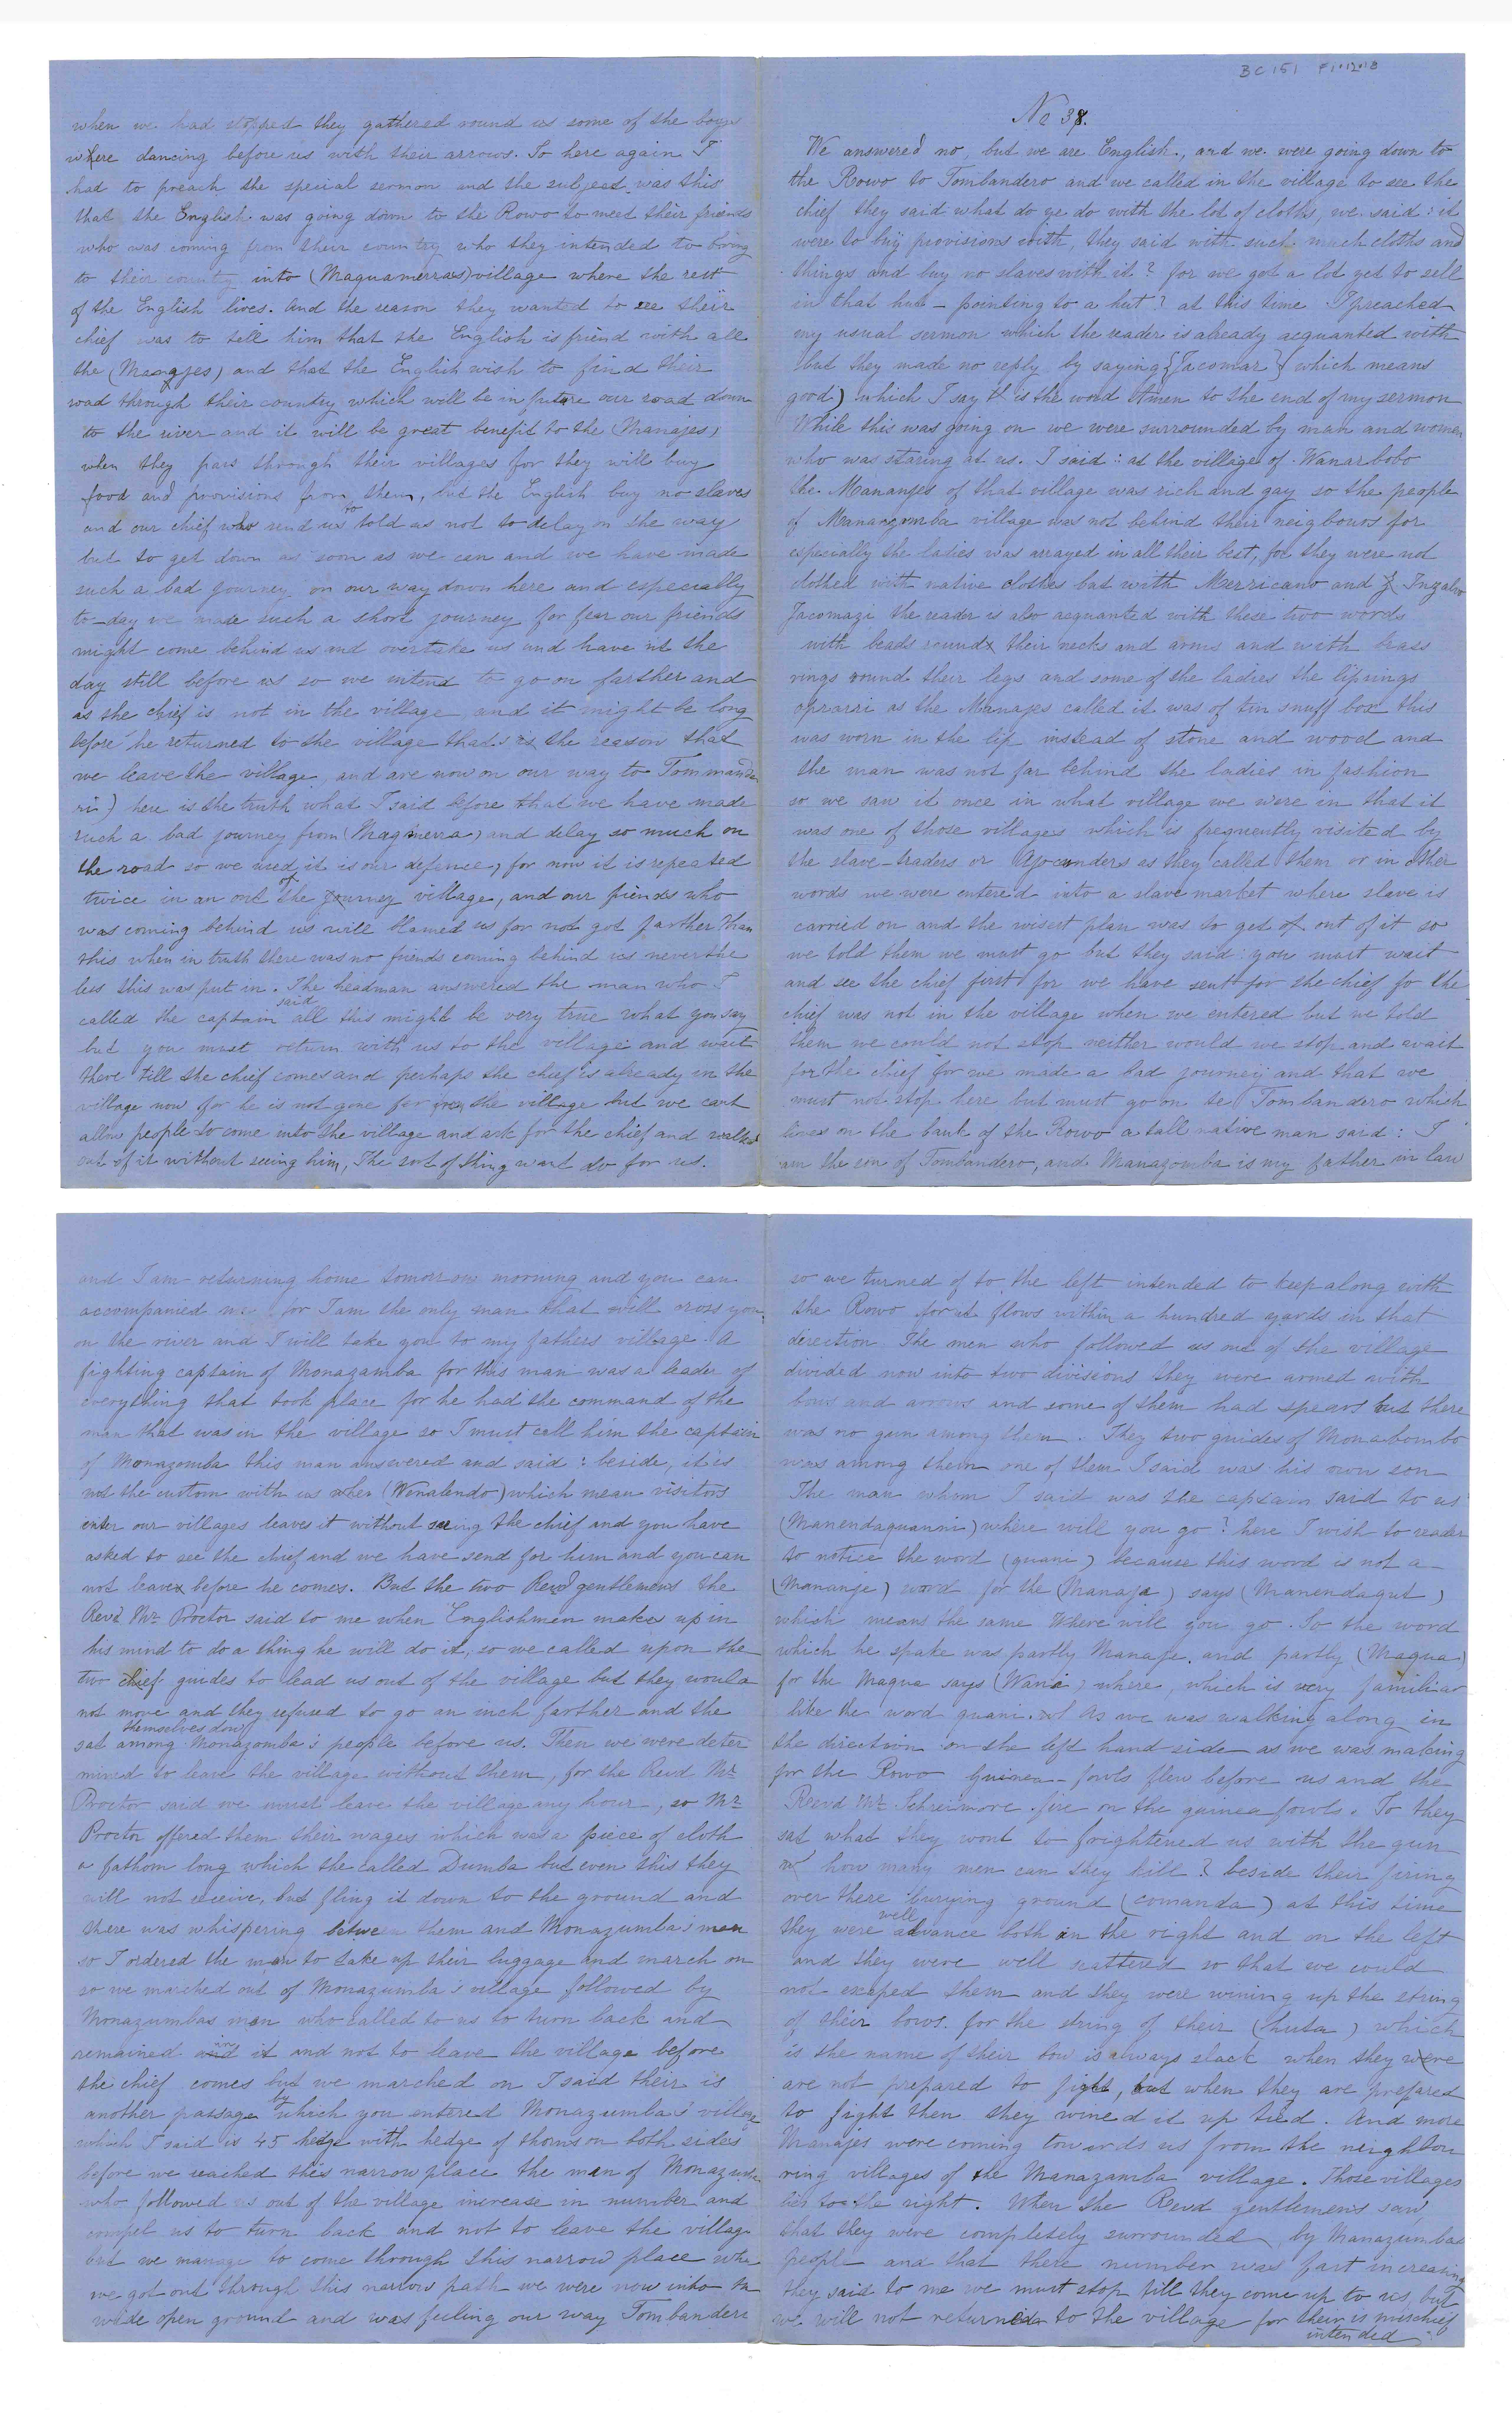 when we had stopped they gathered round us some of the boys
where dancing before us with their arrows. So here again I
had to preach the special sermon and the subject was this
that the English was going down to the Rowo to meet their friends
who was coming from their country who they intended to bring
to their county into (Maguamerras) village where the rest
of the English lives. and the reason they wanted to see their
chief was to tell him that the English is friend with all
the (Manajes) and that the English wish to find their
road through their country which will be in future our road down
to the river and it will be great benefit to the (Manajes)
when they pass through their villages for they will buy
food and provisions from them, but the English buy no slaves
and our chief who send us to told as not to delay on the way
but to get down as soon as we can and we have made
such a bad journey on our way down here and especially
to-day we made such a short journey for fear our friends
might come behind us and overtake us and have it the
day still before us so we intend to go on farther and
as the chief is not in the village and it might be long
before he returned to the village that is the reason that
we leave the village, and are now on our way to Tommande
ri) here is the truth what I said before that we have made
such a bad journey from (Magmerra) and delay so much on
the road so we used it is our defence, for now it is repeated
twice in an out of the journey village, and our friends who
was coming behind us will blamed us for not got farther than
this when in truth there was no friends coming behind us neverthe
less this was put in. The headman answered the man who I
called the captain said all this might be very true what you say
but you must return with us to the village and wait
there till the chief comes and perhaps the chief is already in the
village now for he is not gone far from the village but we cant
allow people to come into the village and ask for the chief and walked
out of it without seeing him, The sort of thing wont do for us.
BC 151 F1.12.13
No 38.
We answered no, but we are English, and we were going down to
the Rowo to Tombandero and we called in the village to see the
chief they said what do ye do with the lot of cloths, we said: it
were to buy provisions with, they said with such much cloths and
things and buy no slaves with it? for we got a lot yet to sell
in that hut - pointing to a hut? at this time I preached
my usual sermon which the reader is already acquanted with
but they made no reply by saying {Jacomar} (which means
good) which I say it is the word Amen to the end of my sermon
While this was going on we were surrounded by man and women
who was staring at us. I said: at the village of Wanarbobo
the Mananjes of that village was rich and gay so the people
of Manangomba village was not behind their neigbours for
especially the ladies was arrayed in all their best, for they were not
clothed with native clothes but with Merricano and Inzalvo
Jacomazi the reader is also acquanted with these two words
with beads round their necks and arms and with brass
rings round their legs and some of the ladies the lip rings
oprarri as the Manajes called it was of tin snuff box this
was worn in the lip instead of stone and wood and
the man was not far behind the ladies in fashion
so we saw it once in what village we were in that it
was one of those villages which is frequently visited by
the slave-traders or Ajocunders as they called them or in other
words we were entered into a slave market where slave is
carried on and the wisest plan was to get of out of it so
we told them we must go but they said: you must wait
and see the chief first for we have sent for the chief fo the
chief was not in the village when we entered but we told
them we could not stop neither would we stop and wait
for the chief for we made a bad journey and that we
must not stop here but must go on to Tombandero which
lives on the bank of the Rowo a tall native man said: I
am the son of Tombandero, and Manazomba is my father in law
and I am returning home tomorrow morning and you can
accompanied me for I am the only man that will cross you
on the river and I will take you to my fathers village. A
fighting captain of Monazamba for this man was a leader of
everything that took place for he had the command of the
man that was in the village so I must call him the captain
of Monazomba this man answered and said: beside, it is
not the custom with us when (Wenalendo) which mean visitors
enter our villages leaves it without seeing the chief and you have
asked to see the chief and we have send for him and you can
not leave before he comes. But the two Revd gentlemens the
Revd Mr Proctor said to me when Englishmen makes up in
his mind to do a thing he will do it, so we called upon the
two chief guides to lead us out of the village but they would
not move and they refused to go an inch farther and the
sat themselves down among Monazomba's people before us. Then we were deter
mined to leave the village without them, for the Revd Mr
Proctor said we must leave the village any hour, so Mr
Proctor offered them their wages which was a piece of cloth
a fathom long which the called Dumba but even this they
will not receive, but fling it down to the ground and
there was whispering between them and Monazumba's man
so I ordered the man to take up their luggage and march on
so we marched out of Monazumba's village followed by
Monazumbas man who called to us to turn back and
remained and in it and not to leave the village before
the chief comes but we marched on I said their is
another passage by which you entered Monazumba's village
which I said is 45 hedge with hedge of thorns on both sides
before we reached this narrow place the man of Monazumba
who followed us out of the village increase in number and
compel us to turn back and not to leave the village
but we manage to come through this narrow place whe
we got out through this narrow path we were now into the
wide open ground and was feeling our way Tombanderi
so we turned of to the left intended to keep along with
the Rowo for it flows within a hundred yards in that
direction. The men who followed us out of the village
divided now into two divisions they were armed with
bows and arrows and some of them had spears but there
was no gun among them. They two guides of Monabombo
was among them one of them I said was his own son
The man whom I said was the captain said to us
(Manendaquanni) where will you go? here I wish to reader
to notice the word (quani) because this word is not a
(Mananje) word for the (Manaja) says (Manendagut)
which means the same Where will you go. So the word
which he spake was partly Manaje. and partly (Maqua)
for the Maqua says (Wani) where, which is very familiar
like the word quani. As we was walking along in
the direction on the left hand side as we was making
for the Rowo guinea-fowls flew before us and the
Reevd Mr Schreimore fire on the guinea fowls. So they
sat what they wont to frightened us with the gun
how many men can they kill? beside their firing
over there burying ground (comanda) at this time
they were well advance both in the right and on the left
and they were well scattered so that we could
not escaped them and they were wining up the string
of their bows. for the string of their (huta) which
is the name of their bow is always slack when they were
are not prepared to fight, but when they are prefared
to fight then they wined it up tied. And more
Manajes were coming towards us from the neighbou
ring villages of the Manazamba village. Those villages
lies to the right. When the Revd gentlemens saw
that they were completely surrounded by Manazumbas
people and that there number was fast increasing
they said to me we must stop till they come up to us, but
we will not returned to the village for their is mischief
intended